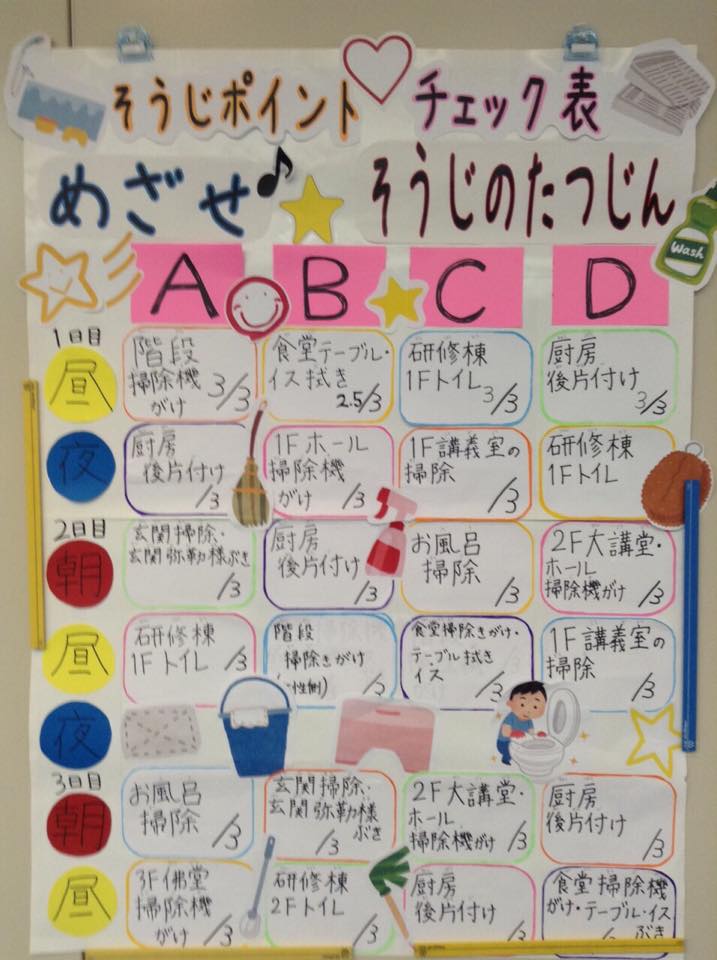 そうじポイント チェック表
めざせ♪ そうじのたつじん
Wash
A B C D
1日目
昼
階段
掃除機
がけ 3/3
食堂テーブル・
イス拭き
2.5/3
研修棟
1Fトイレ 3/3
厨房
後片付け
3/3
夜
厨房
後片付け
/3
1Fホール
掃除機
がけ /3
1F講義室の
掃除
/3
研修棟
1Fトイレ
2日目
朝
玄関掃除・
玄関弥勒様ぶき
/3
厨房
後片付け
/3
お風呂
掃除 /3
2F大講堂・
ホール
掃除機がけ /3
昼
研修棟
1Fトイレ /3
階段
掃除きがけ
/3
食堂掃除きがけ・
テーブル拭き
イス /3
1F講義室の
掃除
/3
夜
3日目
朝
お風呂
掃除 /3
玄関掃除・
玄関弥勒様
ぶき
/3
2F大講堂・
ホール
掃除機がけ /3
厨房
後片付け
/3
昼
3F佛堂
掃除機
がけ /3
研修棟
2Fトイレ /3
厨房
後片付け /3
食堂掃除機
がけ・テーブル・イス
ぶき